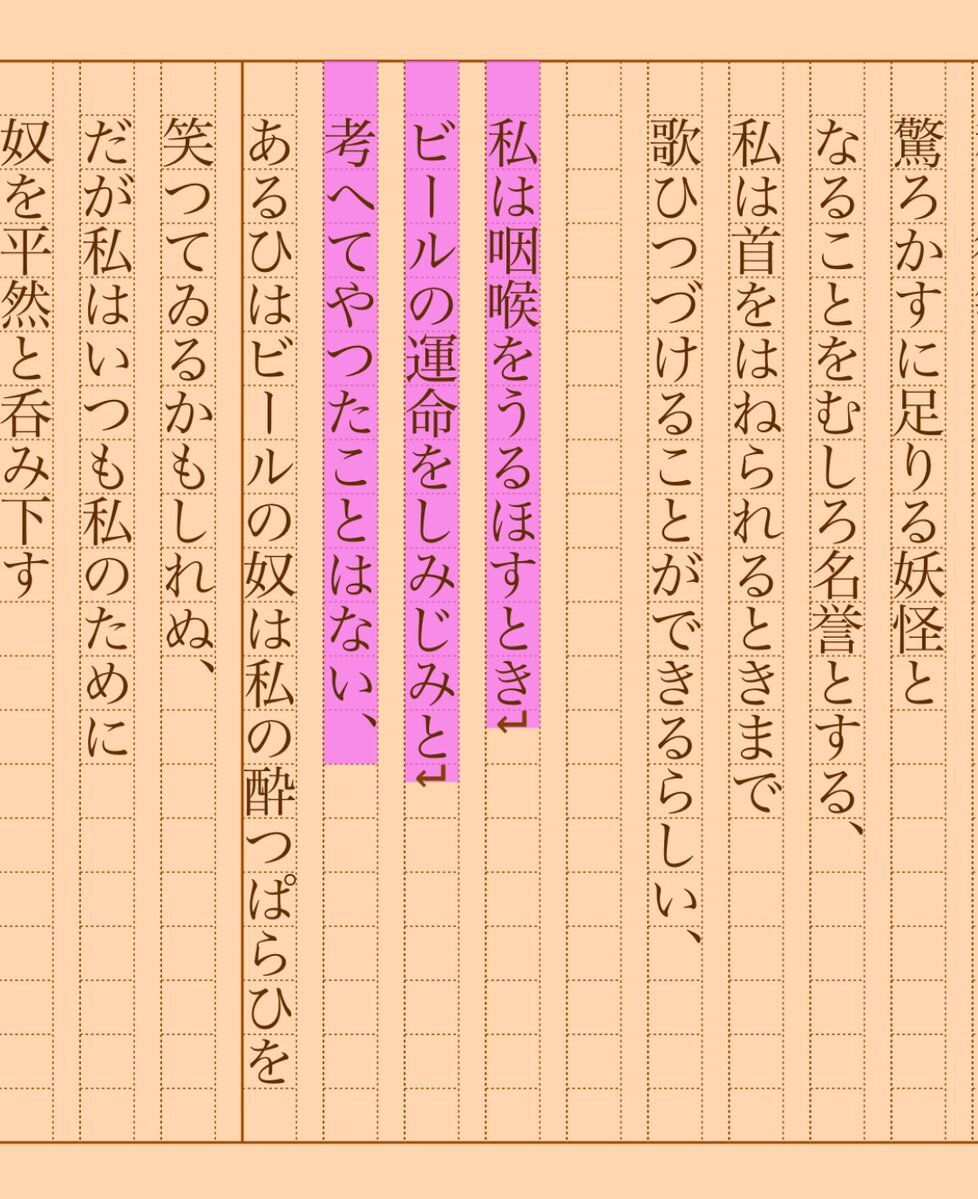 驚ろかすに足りる妖怪と
なることをむしろ名誉とする、
私は首をはねられるときまで
歌ひつづけることができるらしい、

私は咽喉をうるほすとき↵
ビールの運命をしみじみと↵
考へてやつたことはない、
あるひはビールの奴は私の酔つぱらひを
笑つてゐるかもしれぬ、
だが私はいつも私のために
奴を平然と呑み下す